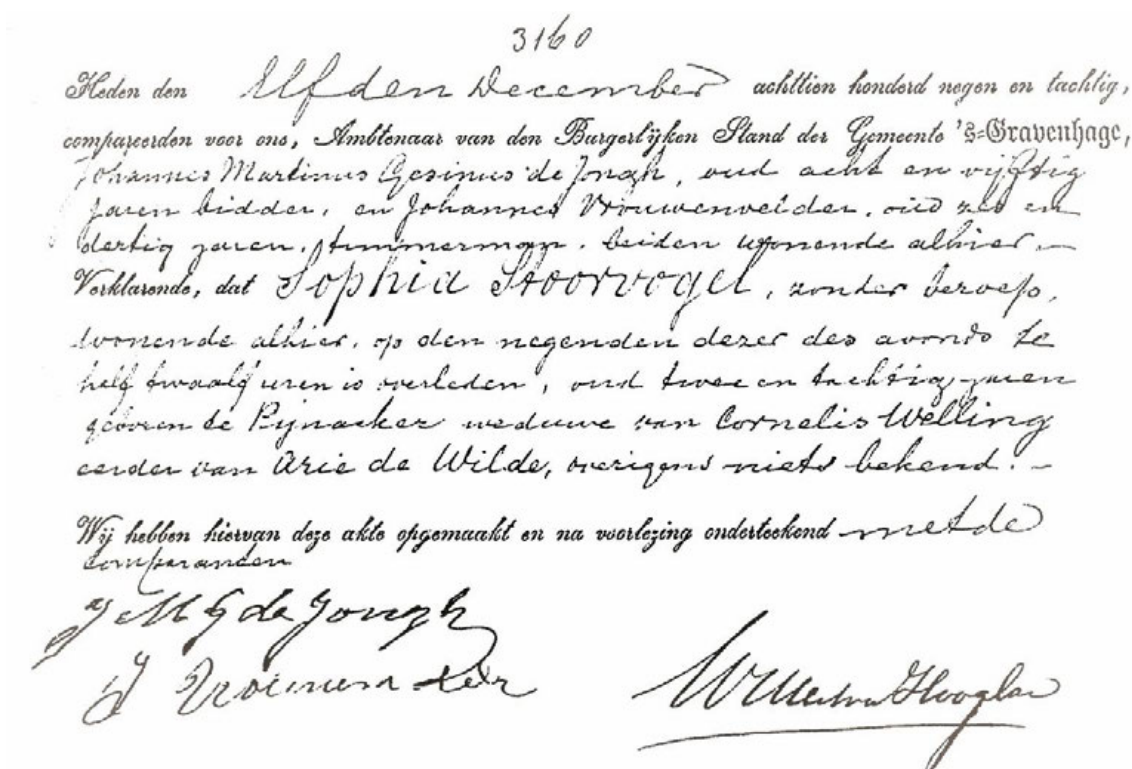 3160
Heden den Elfden December achttien honderd negen en tachtig,
compareerden voor ons, Ambtenaar van den Burgerlijken Stand der Gemeente 's=Gravenhage,
Johannes Martinus Gesinus de Jongh, oud acht en vijftig
jaren bidder, en Johannes Vrouwenvelder, oud zes en
dertig jaren, timmerman, beiden wonende alhier.—
Verklarende, dat Sophia Stoorvogel, zonder beroep,
wonende alhier, op den negenden dezer des avonds te
half twaalf uren is overleden, oud twee en tachtig jaren
geboren te Pijnacker weduwe van Cornelis Welling
eerder van Arie de Wilde, overigens niets bekend.—
Wij hebben hiervan deze akte opgemaakt en na voorlezing onderteekend met de
comparanden
J M G de Jongh
J